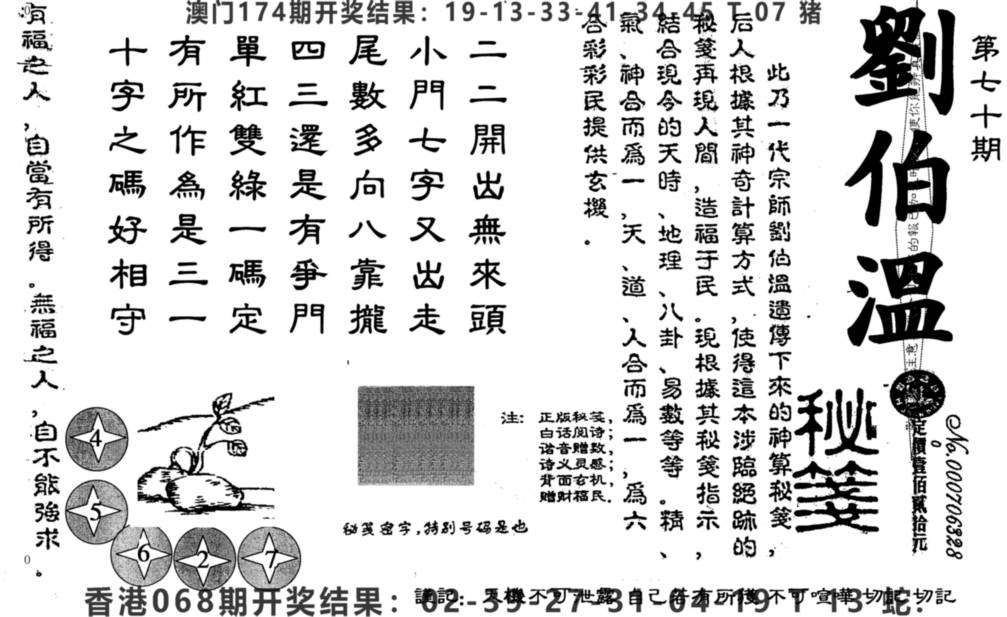 澳门174期开奖结果：19-13-33-41-34-45 T 07 猪
第七十期
劉伯溫
秘箋
定價壹佰貳拾元
No.000706328
此乃一代宗師劉伯溫遺傳下來的神算秘箋，
后人根據其神奇計算方式，使得這本涉臨絕跡的
秘箋再現人間，造福于民。現根據其秘箋指示，
結合現今的天時、地理、八卦、易數等等。精、
氣、神合而爲一，天、道、人合而爲一，爲六
合彩彩民提供玄機。
二二開出無來頭
小門七字又出走
尾數多向八靠攏
四三還是有爭門
單紅雙綠一碼定
有所作為是三一
十字之碼好相守
有福之人，自當有所得。無福之人，自不能強求。
注：正版秘笺，
白话阅诗；
谐音赠数，
诗义灵感；
背面玄机，
赠财福民．
秘笺密字,特别号码是也
4
5
6
2
7
謹記：天機不可泄露 自己若有所獲 不可喧嘩 切記 切記
香港068期开奖结果：02-39-27-31-04-19 T 13 蛇.